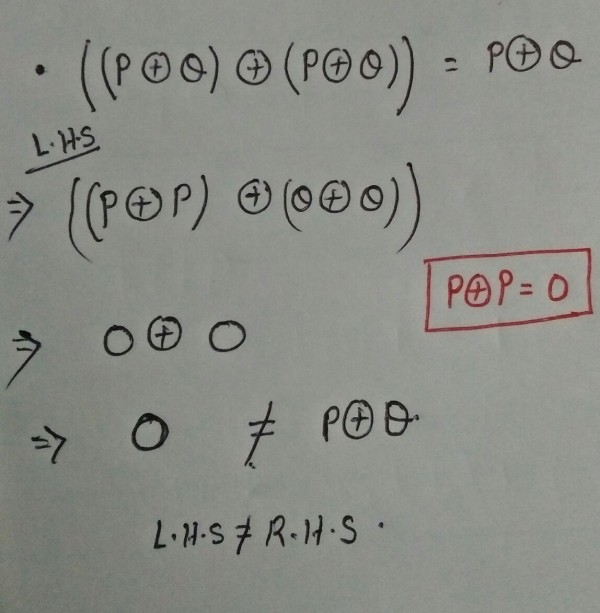 • ((P ⊕ Q) ⊕ (P ⊕ Q)) = P ⊕ Q
L.H.S
⇒ ((P ⊕ P) ⊕ (Q ⊕ Q))
P ⊕ P = 0
⇒ 0 ⊕ 0
⇒ 0 ≠ P ⊕ Q.
L.H.S ≠ R.H.S .